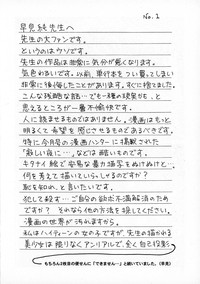 No.1
早見純先生へ
先生の大ファンです。
というのはウソです。
先生の作品は非常に気分が悪くなります。
気色わるいです。以前、単行本をつい買ってしまい
非常に後悔したことがあります。すぐに捨てました。
こんな残酷な話…でも一種の現実かも、と
思えるところが一番不愉快です。
人に読ませるものではありません。漫画はもっと
明るくて希望を感じさせるものであるべきです。
特に今月号の漫画ハンターに掲載された
「厳しい夜に…」などは酷いものです。
キタナイ絵で安易な暴力描写をぬけぬけと…
何を考えて描いていらっしゃるのですか？
恥を知れ、と言いたいです。
犯して殺す…ご自分の欲求不満解消のため
ですか？それなら他の方法を探してください。
漫画の世界が汚れますから。
私はハイティーンの女の子ですが、先生の描かれる
美少女は限りなくアンリアルで、全く自己投影
もちろん2枚目の便せんに「できません…」と続いていました。(早見)